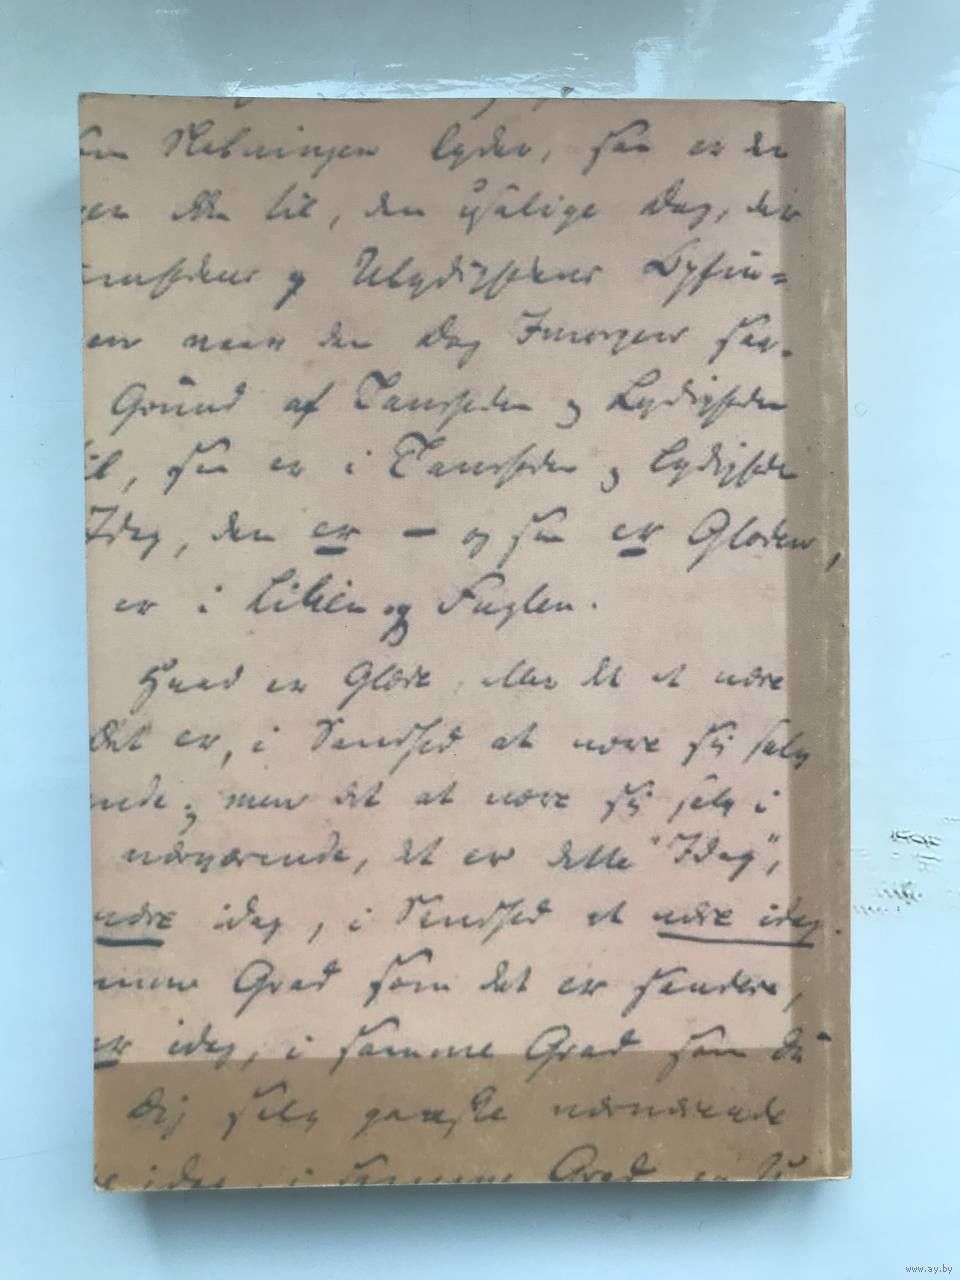 Skabningen lyder, saa er den
til, den usalige Dag, der
og Ulydighedens Opfin=
naar den Dag Imorgen saa-
Grund af Tausheden og Lydigheden
til, saa er i Tausheden og Lydigheden
Idag, den er — og saa er Glæden,
er i Lilien og Fuglen.
Hvad er Glæde, eller det at være
det er, i Sandhed at være sig selv
men det at være sig selv i
nærværende, det er dette "Idag",
være idag, i Sandhed at være idag.
Grad som det er sandere,
er idag, i samme Grad som Du
Dig selv ganske nærværende
idag, i samme Grad er
www.ay.by